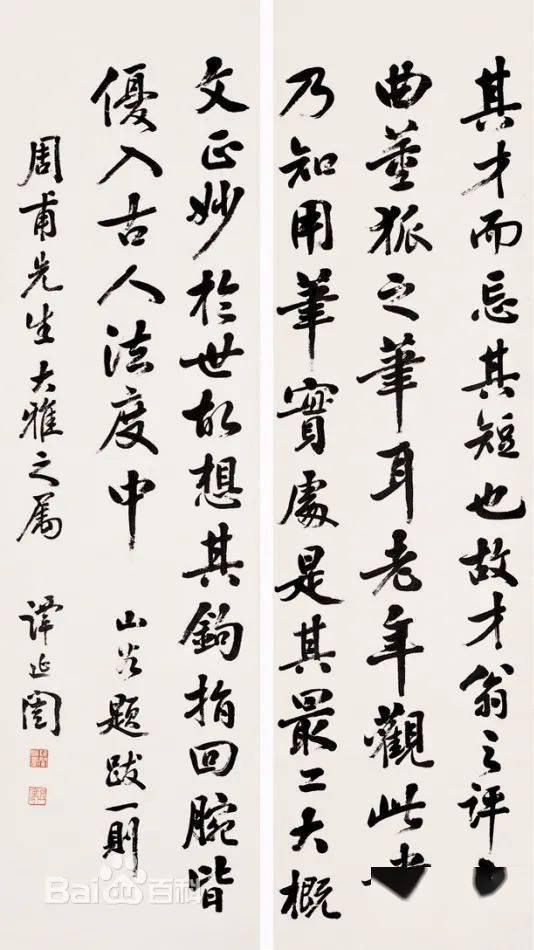 其才而忘其短也故才翁之評
曲董狐之筆耳老年觀此書
乃知用筆實處是其最工大概
文正妙於世故想其鉤指回腕皆
優入古人法度中
山谷題跋一則
周甫先生大雅之屬
譚延闓
Baidu百科